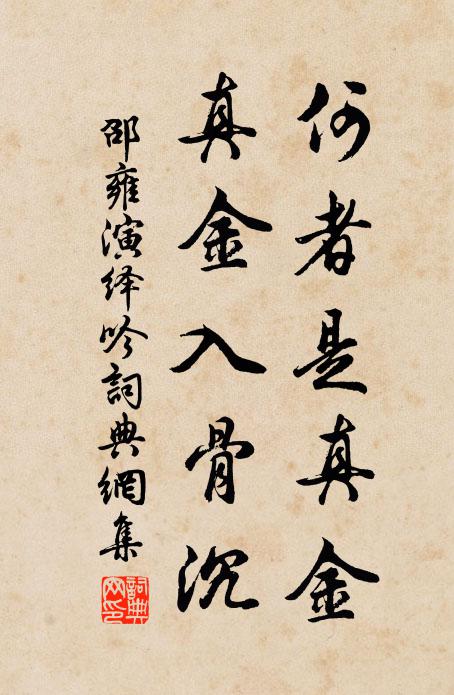 何者是真金
真金入骨沉
邵雍演绎吟詞典網集
詞典
网印